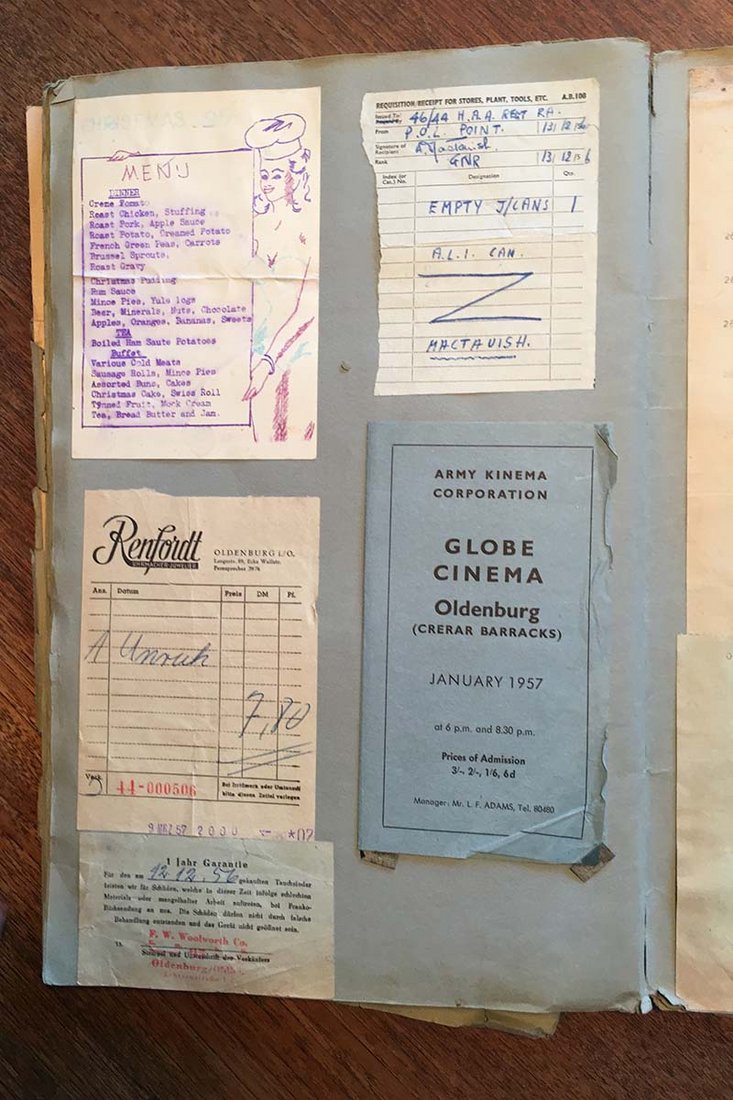 MENU
DINNER
Creme Tomato
Roast Chicken, Stuffing
Roast Pork, Apple Sauce
Roast Potato, Creamed Potato
French Green Peas, Carrots
Brussel Sprouts,
Roast Gravy
Christmas Pudding
Rum Sauce
Mince Pies, Yule logs
Beer, Minerals, Nuts, Chocolate
Apples, Oranges, Bananas, Sweets
TEA
Boiled Ham Saute Potatoes
Buffet
Various Cold Meats
Sausage Rolls, Mince Pies
Assorted Buns, Cakes
Christmas Cake, Swiss Roll
Tynned Fruit, Mock Cream
Tea, Bread Butter and Jam.
REQUISITION/RECEIPT FOR STORES, PLANT, TOOLS, ETC. A.B.108
Issued To 46/44 H.A.A REGT RA.
From P.O.L. POINT. 13/12/56
Signature of Recipient
Rank GNR 13/12/56
Index (or Cat.) No. Designation Qty.
EMPTY J/CANS 1
A.L.I. CAN.
MACTAVISH.
Renfordt
UHRMACHER-JUWELIER
OLDENBURG i/O.
Langestr. 89, Ecke Wallstr.
Fernsprecher 3976
Anz. Datum Preis DM Pf.
Unruh
7,80
Verk. 44-000506
Bei Irrtümern oder Umtausch
bitte diesen Zettel vorlegen
57 2000
1 Jahr Garantie
Für den am 12.12.56 gekauften Tauchsieder
leisten wir für Schäden, welche in dieser Zeit infolge schlechten
Materials oder mangelhafter Arbeit auftreten, bei Franko-
Rücksendung an uns. Die Schäden dürfen nicht durch falsche
Behandlung entstanden und das Gerät nicht geöffnet sein.
F. W. Woolworth Co.
Stempel und Unterschrift des Verkäufers
Oldenburg
ARMY KINEMA
CORPORATION
GLOBE
CINEMA
Oldenburg
(CRERAR BARRACKS)
JANUARY 1957
at 6 p.m. and 8.30 p.m.
Prices of Admission
3/-, 2/-, 1/6, 6d
Manager: Mr. L. F. ADAMS, Tel. 80480